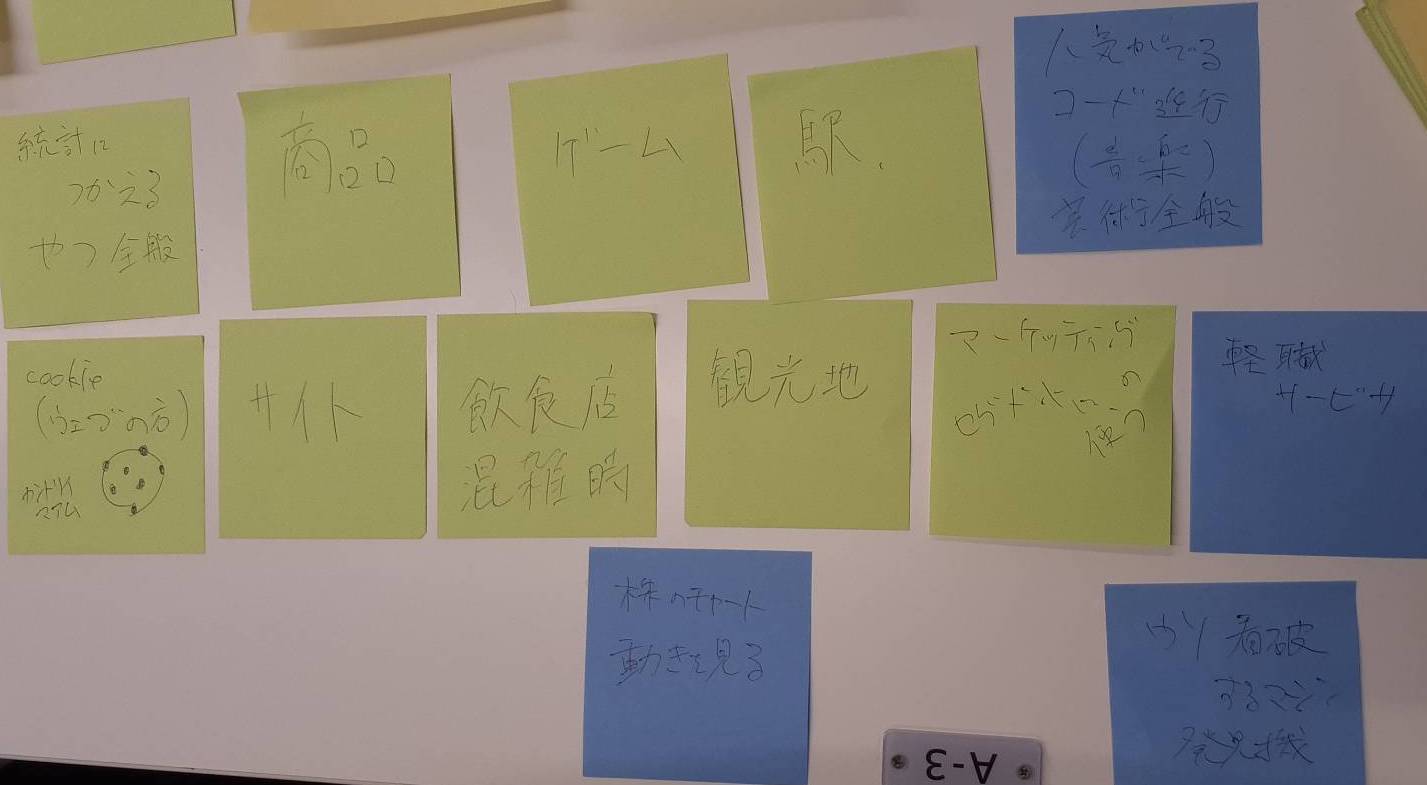 統計に
つかえる
やつ全般
商品
ゲーム
駅.
人気がでる
コード進行
(音楽)
芸術全般
cookie
(ウェブの方)
カントリイ
マアム
サイト
飲食店
混雑時
観光地
マーケッティング
の
使う
軽職
サービサ
株のチャート
動きを見る
看破
するマシン
発見機
A-3